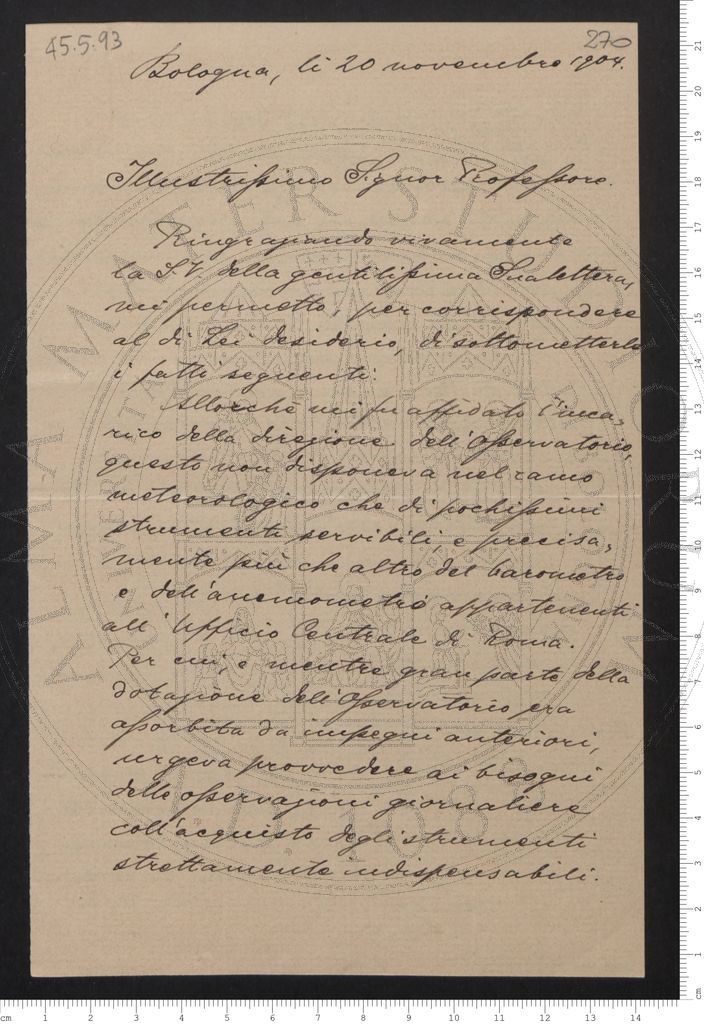 45.5.93
270
Bologna, li 20 novembre 1904.
Illustrissimo Signor Professore.
Ringraziando vivamente
la S.V. della gentilissima Sua lettera,
mi permetto, per corrispondere
al di Lei desiderio, di sottometterle
i fatti seguenti:
Allorchè mi fu affidato l'inca-
rico della direzione dell'Osservatorio,
questo non disponeva nel ramo
meteorologico che di pochissimi
strumenti servibili, e precisa-
mente più che altro del barometro
e dell'anemometro appartenenti
all'Ufficio Centrale di Roma.
Per cui, e mentre gran parte della
dotazione dell'Osservatorio era
assorbita da impegni anteriori,
urgeva provvedere ai bisogni
delle osservazioni giornaliere
coll'acquisto degli strumenti
strettamente indispensabili.
ALMA MATER STUDIORUM
A.D. 1088
cm 1 2 3 4 5 6 7 8 9 10 11 12 13 14
cm 1 2 3 4 5 6 7 8 9 10 11 12 13 14 15 16 17 18 19 20 21